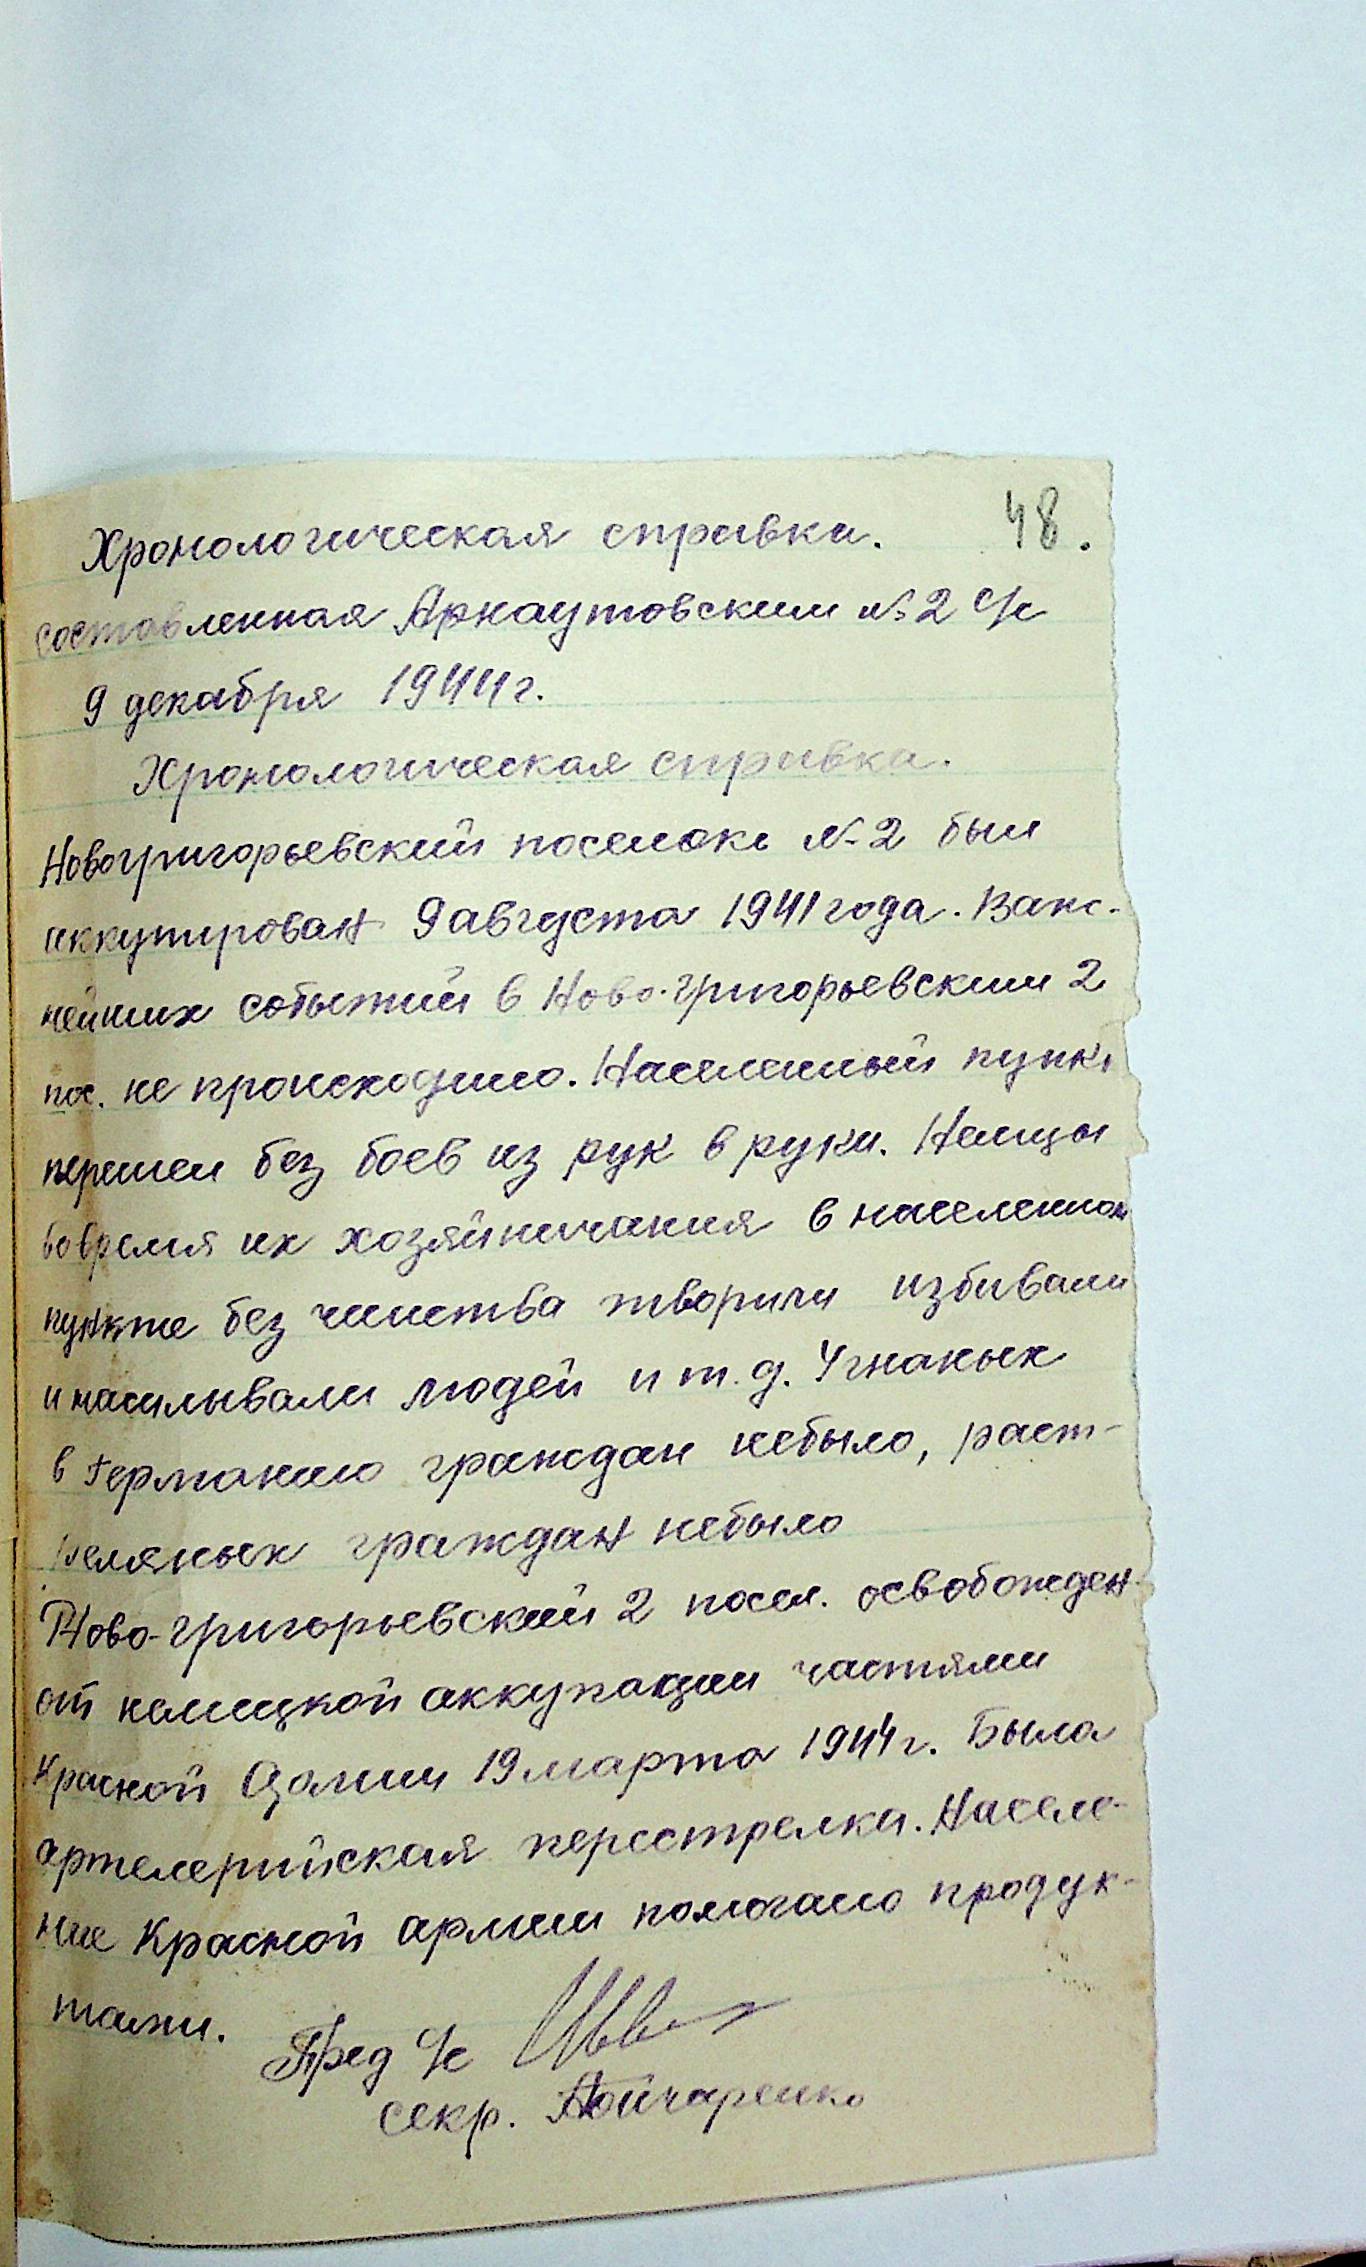 48.
Хронологическая справка.
составленная Аркаутовским №2 с/с
9 декабря 1944 г.
Хронологическая справка.
Новогригорьевский поселокь №2 был
аккупирован 9 августа 1941 года. Важ-
нейших событий в Ново-Григорьевским 2
пос. не происходило. Населенный пункт
перешел без боев из рук в руки. Немцы
вовремя их хозяйничания в населенном
пункте без чинства творили избивали
и насилывали людей и т.д. Угнаных
в Германию граждан небыло, раст-
реляных граждан небыло
Ново-Григорьевский 2 посел. освобожден
от немецкой аккупации частями
Красной Армии 19 марта 1944 г. Была
артелерийская перестрелка. Населе-
ние Красной армии помогало продук-
тами.
Пред с/с
секр.